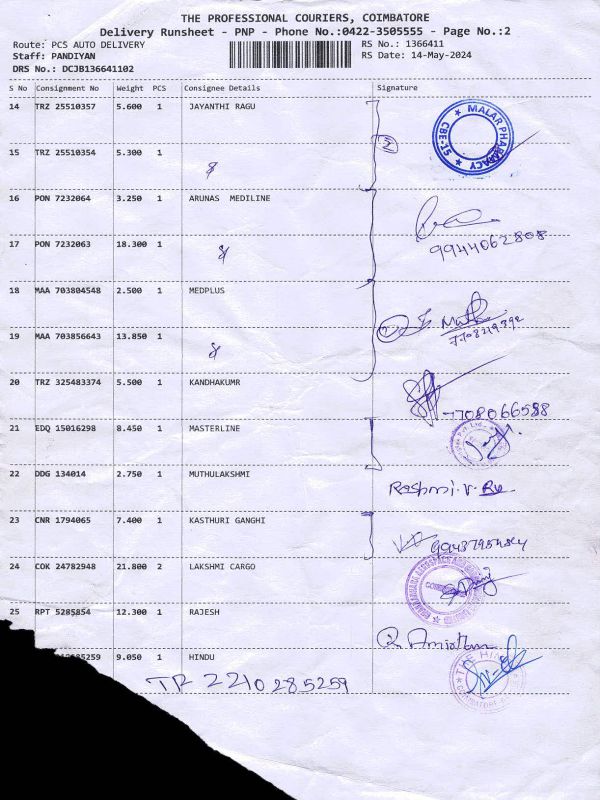 THE PROFESSIONAL COURIERS, COIMBATORE
Delivery Runsheet - PNP - Phone No.:0422-3505555 - Page No.:2
Route: PCS AUTO DELIVERY RS No.: 1366411
Staff: PANDIYAN RS Date: 14-May-2024
DRS No.: DCJB136641102
S No Consignment No Weight PCS Consignee Details Signature
14 TRZ 25510357 5.600 1 JAYANTHI RAGU
MALAR PHARMACY CBE-15
15 TRZ 25510354 5.300 1
2
16 PON 7232064 3.250 1 ARUNAS MEDILINE
17 PON 7232063 18.300 1
9944062808
18 MAA 703804548 2.500 1 MEDPLUS
19 MAA 703856643 13.850 1
20 TRZ 325483374 5.500 1 KANDHAKUMR
7708066588
21 EDQ 15016298 8.450 1 MASTERLINE
22 DDG 134014 2.750 1 MUTHULAKSHMI
Rashmi.V.
23 CNR 1794065 7.400 1 KASTHURI GANGHI
24 COK 24782948 21.800 2 LAKSHMI CARGO
25 RPT 5285854 12.300 1 RAJESH
5259 9.050 1 HINDU
THE HINDU
COIMBATORE
TP 2210285259